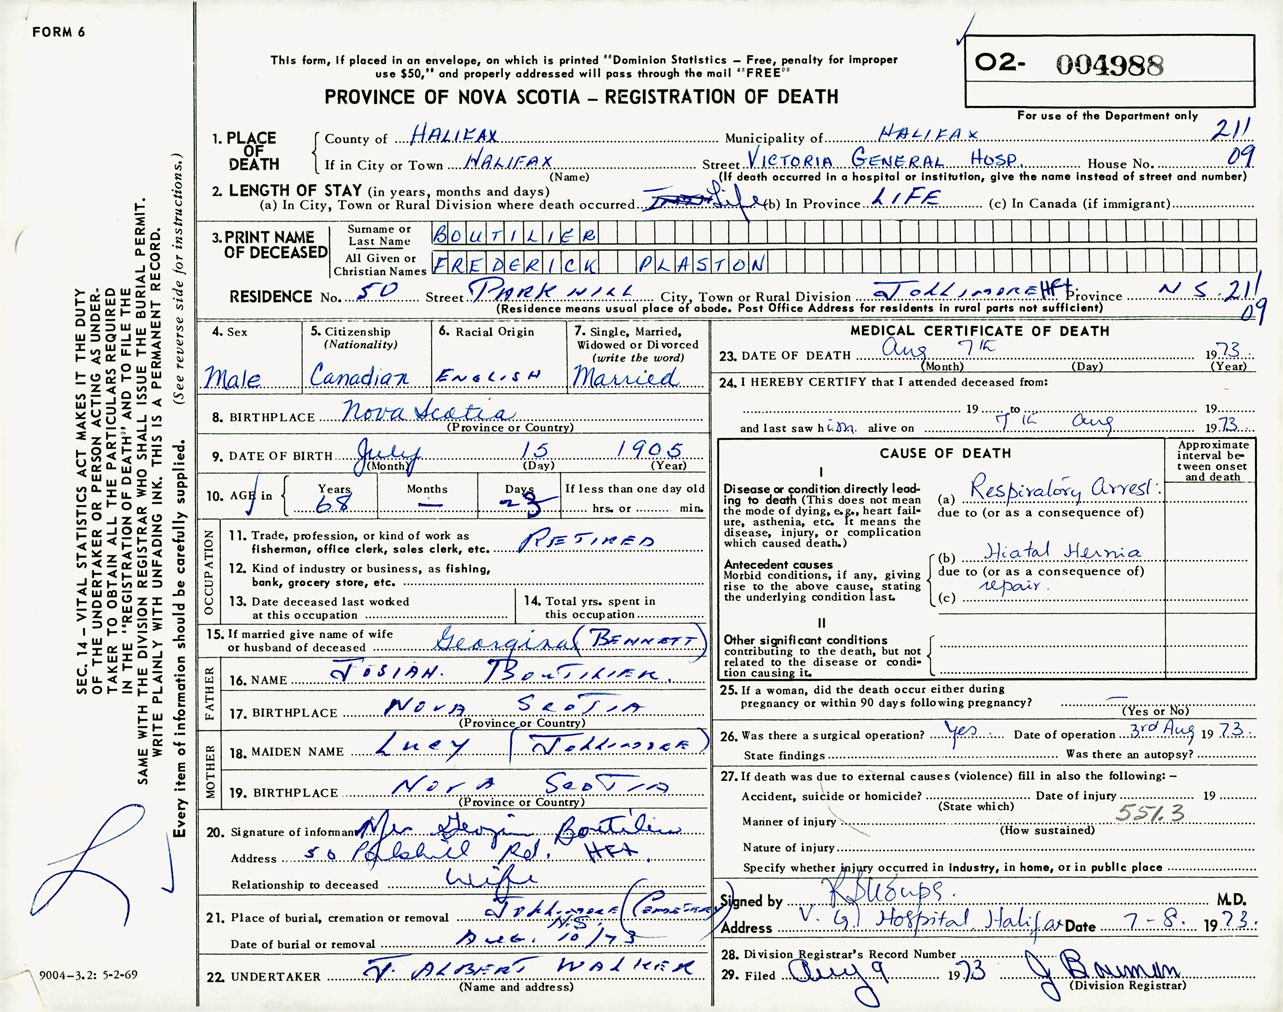 FORM 6
This form, if placed in an envelope, on which is printed "Dominion Statistics — Free, penalty for improper
use $50," and properly addressed will pass through the mail "FREE"
PROVINCE OF NOVA SCOTIA — REGISTRATION OF DEATH
02- 004988
For use of the Department only
1. PLACE OF DEATH
County of HALIFAX Municipality of HALIFAX 211
If in City or Town HALIFAX Street VICTORIA GENERAL HOSP. House No. 09
(Name) (If death occurred in a hospital or institution, give the name instead of street and number)
2. LENGTH OF STAY (in years, months and days)
(a) In City, Town or Rural Division where death occurred Life (b) In Province LIFE (c) In Canada (if immigrant)
3. PRINT NAME OF DECEASED
Surname or Last Name BOUTILIER
All Given or Christian Names FREDERICK PLASTON
RESIDENCE No. 50 Street PARK HILL City, Town or Rural Division JOLLIMORE HFX Province N S. 211
(Residence means usual place of abode. Post Office Address for residents in rural parts not sufficient) 09
4. Sex Male
5. Citizenship (Nationality) Canadian
6. Racial Origin ENGLISH
7. Single, Married, Widowed or Divorced (write the word) Married
8. BIRTHPLACE Nova Scotia
(Province or Country)
9. DATE OF BIRTH July 15 1905
(Month) (Day) (Year)
10. AGE in Years 68 Months — Days 23 If less than one day old
hrs. or min.
OCCUPATION
11. Trade, profession, or kind of work as
fisherman, office clerk, sales clerk, etc. RETIRED
12. Kind of industry or business, as fishing,
bank, grocery store, etc.
13. Date deceased last worked
at this occupation
14. Total yrs. spent in
this occupation
15. If married give name of wife
or husband of deceased Georgina (BENNETT)
FATHER
16. NAME JOSIAH. BOUTILIER.
17. BIRTHPLACE NOVA SCOTIA
(Province or Country)
MOTHER
18. MAIDEN NAME LUCY (JOLLIMORE)
19. BIRTHPLACE NOVA SCOTIA
(Province or Country)
20. Signature of informant Mrs Georgin Boutilier
Address 50 Parkhill Rd. HFX.
Relationship to deceased Wife
21. Place of burial, cremation or removal JOLLIMORE (CEMETERY) N.S.
Date of burial or removal AUG. 10/73
22. UNDERTAKER J. ALBERT WALKER
(Name and address)
MEDICAL CERTIFICATE OF DEATH
23. DATE OF DEATH Aug 7th 1973
(Month) (Day) (Year)
24. I HEREBY CERTIFY that I attended deceased from:
19 to 19
and last saw him alive on 7th Aug 1973.
CAUSE OF DEATH
Approximate interval between onset and death
I
Disease or condition directly lead-
ing to death (This does not mean
the mode of dying, e.g., heart fail-
ure, asthenia, etc. It means the
disease, injury, or complication
which caused death.)
(a) Respiratory Arrest.
due to (or as a consequence of)
Antecedent causes
Morbid conditions, if any, giving
rise to the above cause, stating
the underlying condition last.
(b) Hiatal Hernia
due to (or as a consequence of)
repair.
(c)
II
Other significant conditions
contributing to the death, but not
related to the disease or condi-
tion causing it.
25. If a woman, did the death occur either during
pregnancy or within 90 days following pregnancy? —
(Yes or No)
26. Was there a surgical operation? Yes Date of operation 3rd Aug 1973.
State findings Was there an autopsy?
27. If death was due to external causes (violence) fill in also the following: —
Accident, suicide or homicide? Date of injury 19
(State which)
Manner of injury 551.3
(How sustained)
Nature of injury
Specify whether injury occurred in industry, in home, or in public place
Signed by M.D.
Address V. G. Hospital, Halifax Date 7-8. 1973.
28. Division Registrar's Record Number
29. Filed Aug 9 1973 J Bowman
(Division Registrar)
SEC. 14 — VITAL STATISTICS ACT MAKES IT THE DUTY
OF THE UNDERTAKER OR PERSON ACTING AS UNDER-
TAKER TO OBTAIN ALL THE PARTICULARS REQUIRED
IN THE "REGISTRATION OF DEATH" AND TO FILE THE
SAME WITH THE DIVISION REGISTRAR WHO SHALL ISSUE THE BURIAL PERMIT.
WRITE PLAINLY WITH UNFADING INK. THIS IS A PERMANENT RECORD.
Every item of information should be carefully supplied. (See reverse side for instructions.)
9004-3.2: 5-2-69